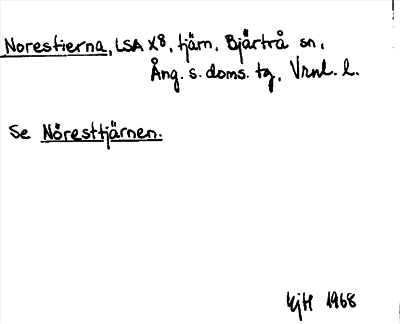 Norestierna, LSA X8, tjärn, Bjärtrå sn,
Ång. s. doms. tg, Vrnl. l.
Se Nöresttjärnen.
HjH 1968